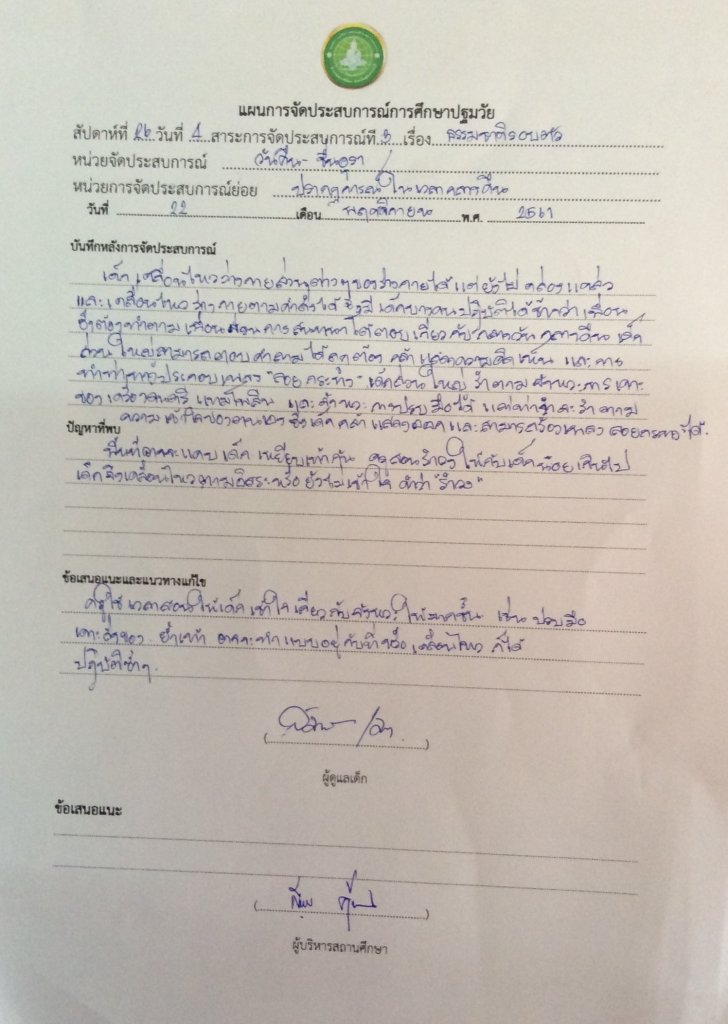 แผนการจัดประสบการณ์การศึกษาปฐมวัย
สัปดาห์ที่ 26 วันที่ 4 สาระการจัดประสบการณ์ที่ 3 เรื่อง ธรรมชาติรอบตัว
หน่วยจัดประสบการณ์ วันคืน-ชื่นอุรา
หน่วยการจัดประสบการณ์ย่อย ปรากฏการณ์ในเวลากลางคืน
วันที่ 22 เดือน พฤศจิกายน พ.ศ. 2561
บันทึกหลังการจัดประสบการณ์
เด็กเคลื่อนไหวร่างกายส่วนต่างๆของร่างกายได้ แต่ยังไม่คล่องแคล่ว
และเคลื่อนไหวร่างกายตามคำสั่งได้ ซึ่งมีเด็กบางคนปฏิบัติได้ช้ากว่าเพื่อน
ซึ่งต้องทำตามเพื่อน ส่วนการสนทนาโต้ตอบเกี่ยวกับกลางวัน กลางคืน เด็ก
ส่วนใหญ่สามารถตอบคำถามได้ถูกต้อง กล้าแสดงความคิดเห็น และการ
ทำท่าทางประกอบเพลง "ลอยกระทง" เด็กส่วนใหญ่รำตามจังหวะการเคาะ
ของเครื่องดนตรี แทมโบลีน และจังหวะการปรบมือได้ แต่ท่ารำจะรำตาม
ความเข้าใจของตนเอง ซึ่งเด็กกล้าแสดงออกและสามารถร้องเพลงลอยกระทงได้.
ปัญหาที่พบ
พื้นที่อาจจะแคบ เด็กเหยียบเท้ากัน ครูสอนรำวงให้กับเด็กน้อยเกินไป
เด็กจึงเคลื่อนไหวตามอิสระหรือยังไม่เข้าใจ คำว่า "รำวง"
ข้อเสนอแนะและแนวทางแก้ไข
ครูใช้เวลาสอนให้เด็กเข้าใจเกี่ยวกับจังหวะให้มากขึ้น เช่น ปรบมือ
เคาะสิ่งของ ย่ำเท้า อาจจะทำแบบอยู่กับที่หรือเคลื่อนไหวก็ได้
ปฏิบัติซ้ำๆ.
ผู้ดูแลเด็ก
ข้อเสนอแนะ
ผู้บริหารสถานศึกษา